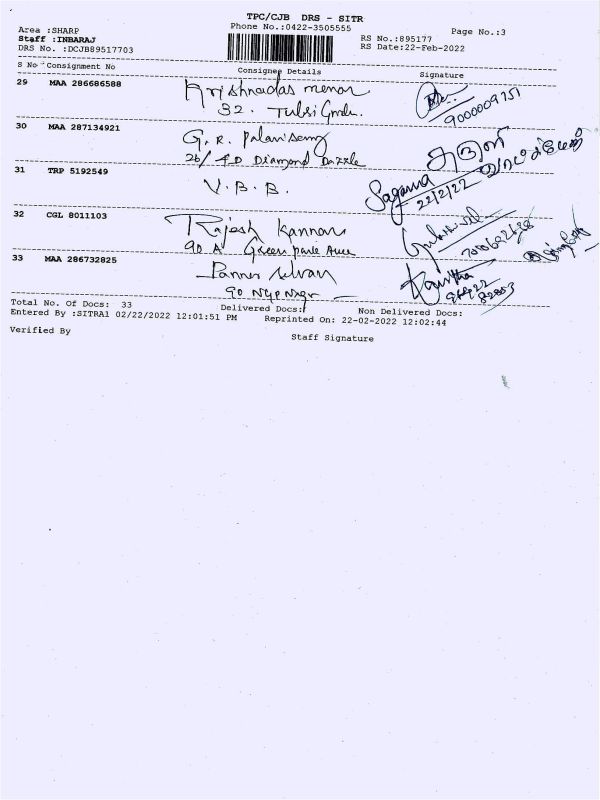 TPC/CJB DRS - SITR
Phone No.:0422-3505555
Page No.:3
Area :SHARP
Staff :INBARAJ
DRS No. :DCJB89517703
RS No.:895177
RS Date:22-Feb-2022
S No Consignment No Consignee Details Signature
29 MAA 286686588 Krishnadas menon
32. Tulsi
9000009751
30 MAA 287134921 G.R. Palanisamy
26/ 4D Diamond Dazzle
அருள்
31 TRP 5192549 V.B.B.
Sagana
22/2/22
32 CGL 8011103 Rajesh Kannan
90 A Green Park Ave
33 MAA 286732825 Panner selvan
90 NGP Ngr
Kavitha
Total No. Of Docs: 33 Delivered Docs: Non Delivered Docs:
Entered By :SITRA1 02/22/2022 12:01:51 PM Reprinted On: 22-02-2022 12:02:44
Verified By
Staff Signature